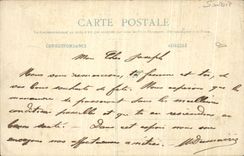 CARTE POSTALE
CORRESPONDANCE ADRESSE
Mon Cher Joseph
Nous vous remercions, ta femme et toi, de
vos bons souhaits de fête. Nous espérons que
manœuvre se passeront dans les meilleures
conditions possibles et que tu en reviendras en
bonne santé. Dans cet espoir nous vous
envoyons nos affectueuses amitiés.